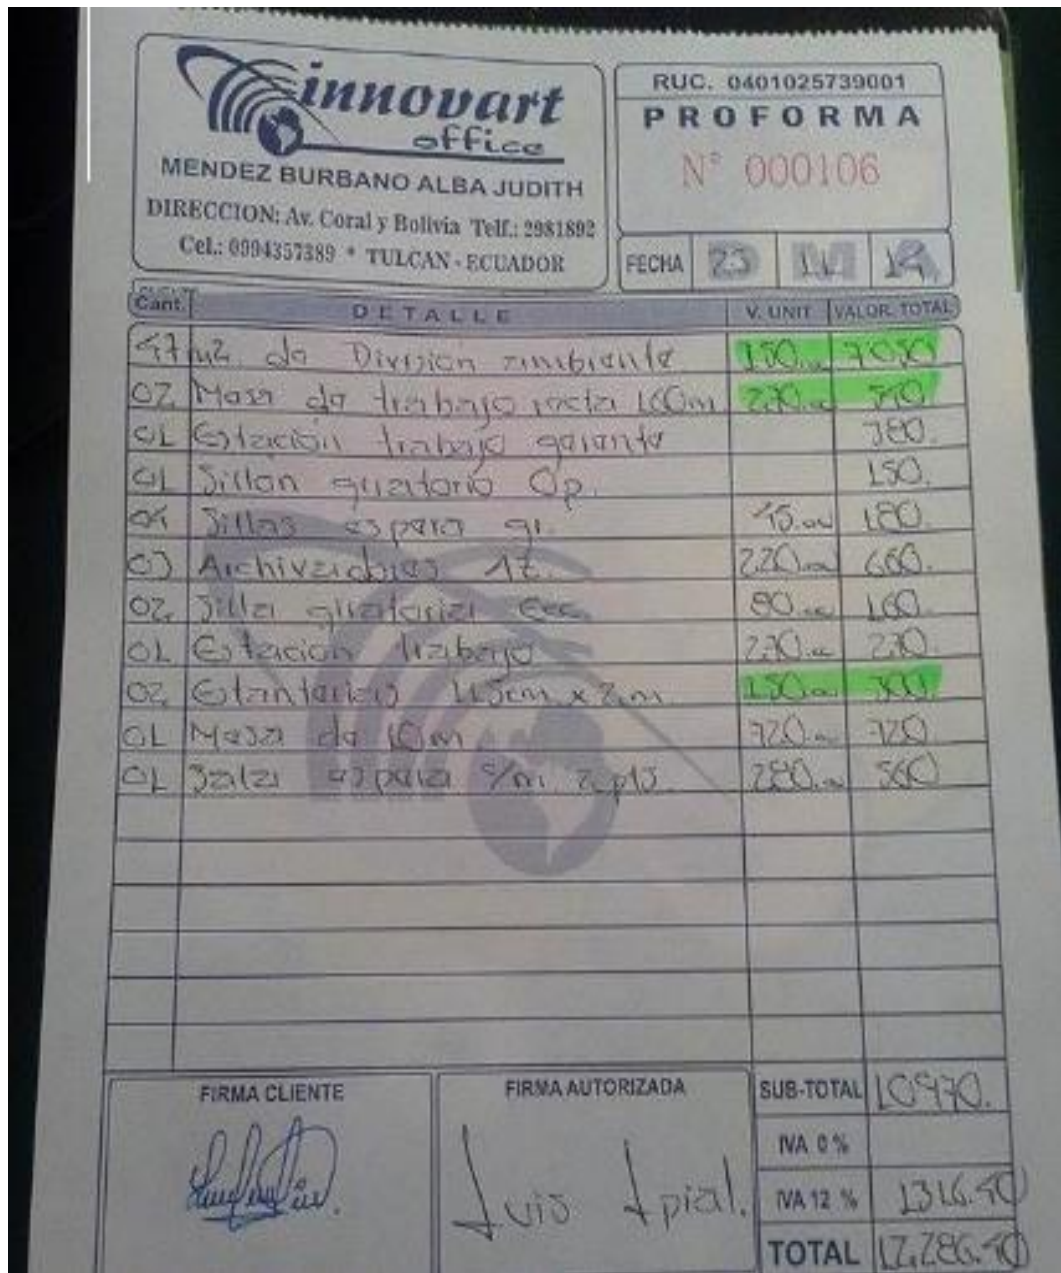 innovart
office
MENDEZ BURBANO ALBA JUDITH
DIRECCION: Av. Coral y Bolivia Telf.: 2981892
Cel.: 0994357389 * TULCAN - ECUADOR
RUC. 0401025739001
PROFORMA
N° 000106
FECHA 23 11 14
Cant. DETALLE V. UNIT VALOR TOTAL
47 m2 de División ambiente 150.00 7050
02 Mesa de trabajo recta 160m 270.00 540
01 Estación trabajo gerente 380.
01 Sillon giratorio Op. 150.
04 Sillas espera gr. 45.00 180.
03 Archivadores 4g. 220.00 660.
02 Silla giratoria Ecc. 80.00 160.
01 Estación trabajo 270.00 270.
02 Estanterias 45cm x 2m. 150.00 300.
01 Mesa de 10m 720.00 720
01 Sala espera c/m 2 pts. 280.00 560
FIRMA CLIENTE
FIRMA AUTORIZADA
Luis Apial.
SUB-TOTAL 10970.
IVA 0 %
IVA 12 % 1316.40
TOTAL 12,286.40